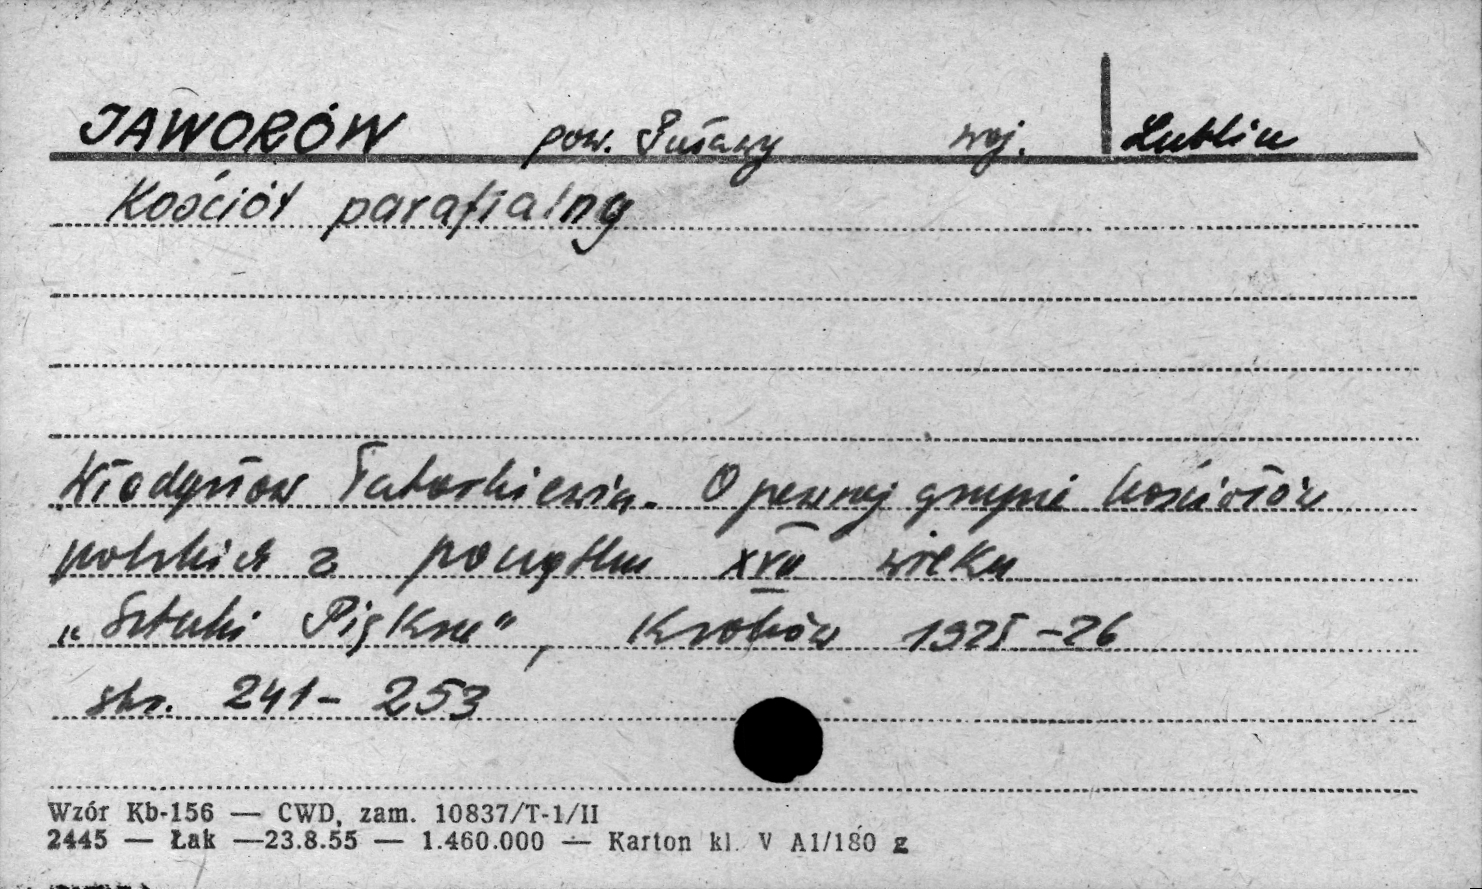 JAWORÓW pow. Puławy woj. Lublin
Kościół parafialny
Władysław Tatarkiewicz. O pewnej grupie kościołów
polskich z początku XVII wieku
„Sztuki Piękne", Kraków 1925-26
str. 241-253
Wzór Kb-156 — CWD, zam. 10837/T-1/II
2445 — Łak —23.8.55 — 1.460.000 — Karton kl. V A1/180 g